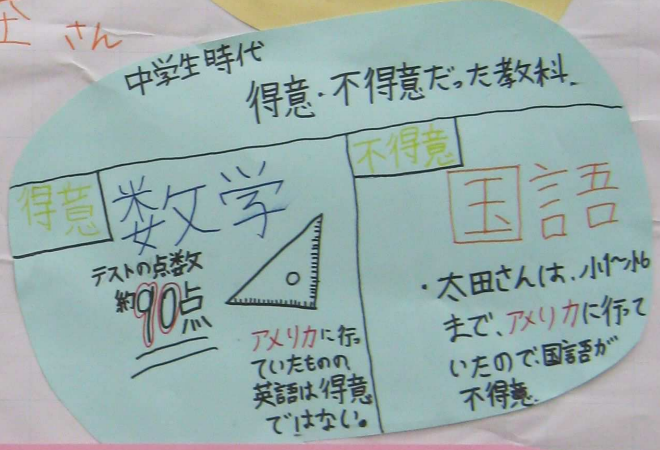 さん
中学生時代
得意・不得意だった教科
得意
数学
テストの点数
約90点
アメリカに行っ
ていたものの、
英語は得意
ではない。
不得意
国語
・太田さんは、小1〜小6
まで、アメリカに行って
いたので、国語が
不得意